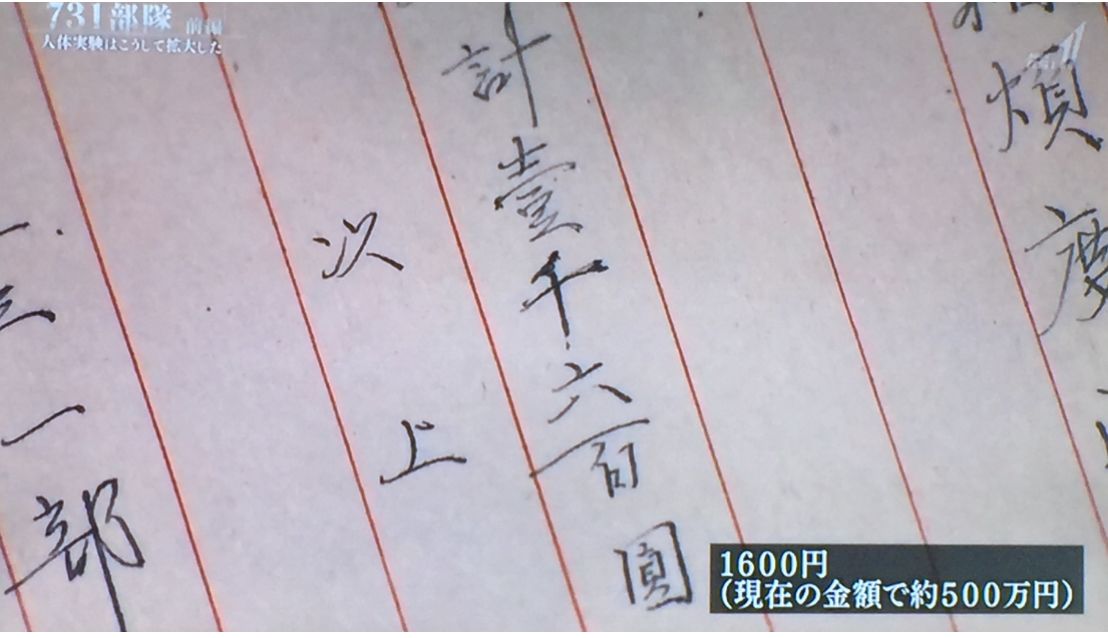 731部隊 前編
人体実験はこうして拡大した
煩慶
計壹千六百圓
以上
三一部
1600円
(現在の金額で約500万円)